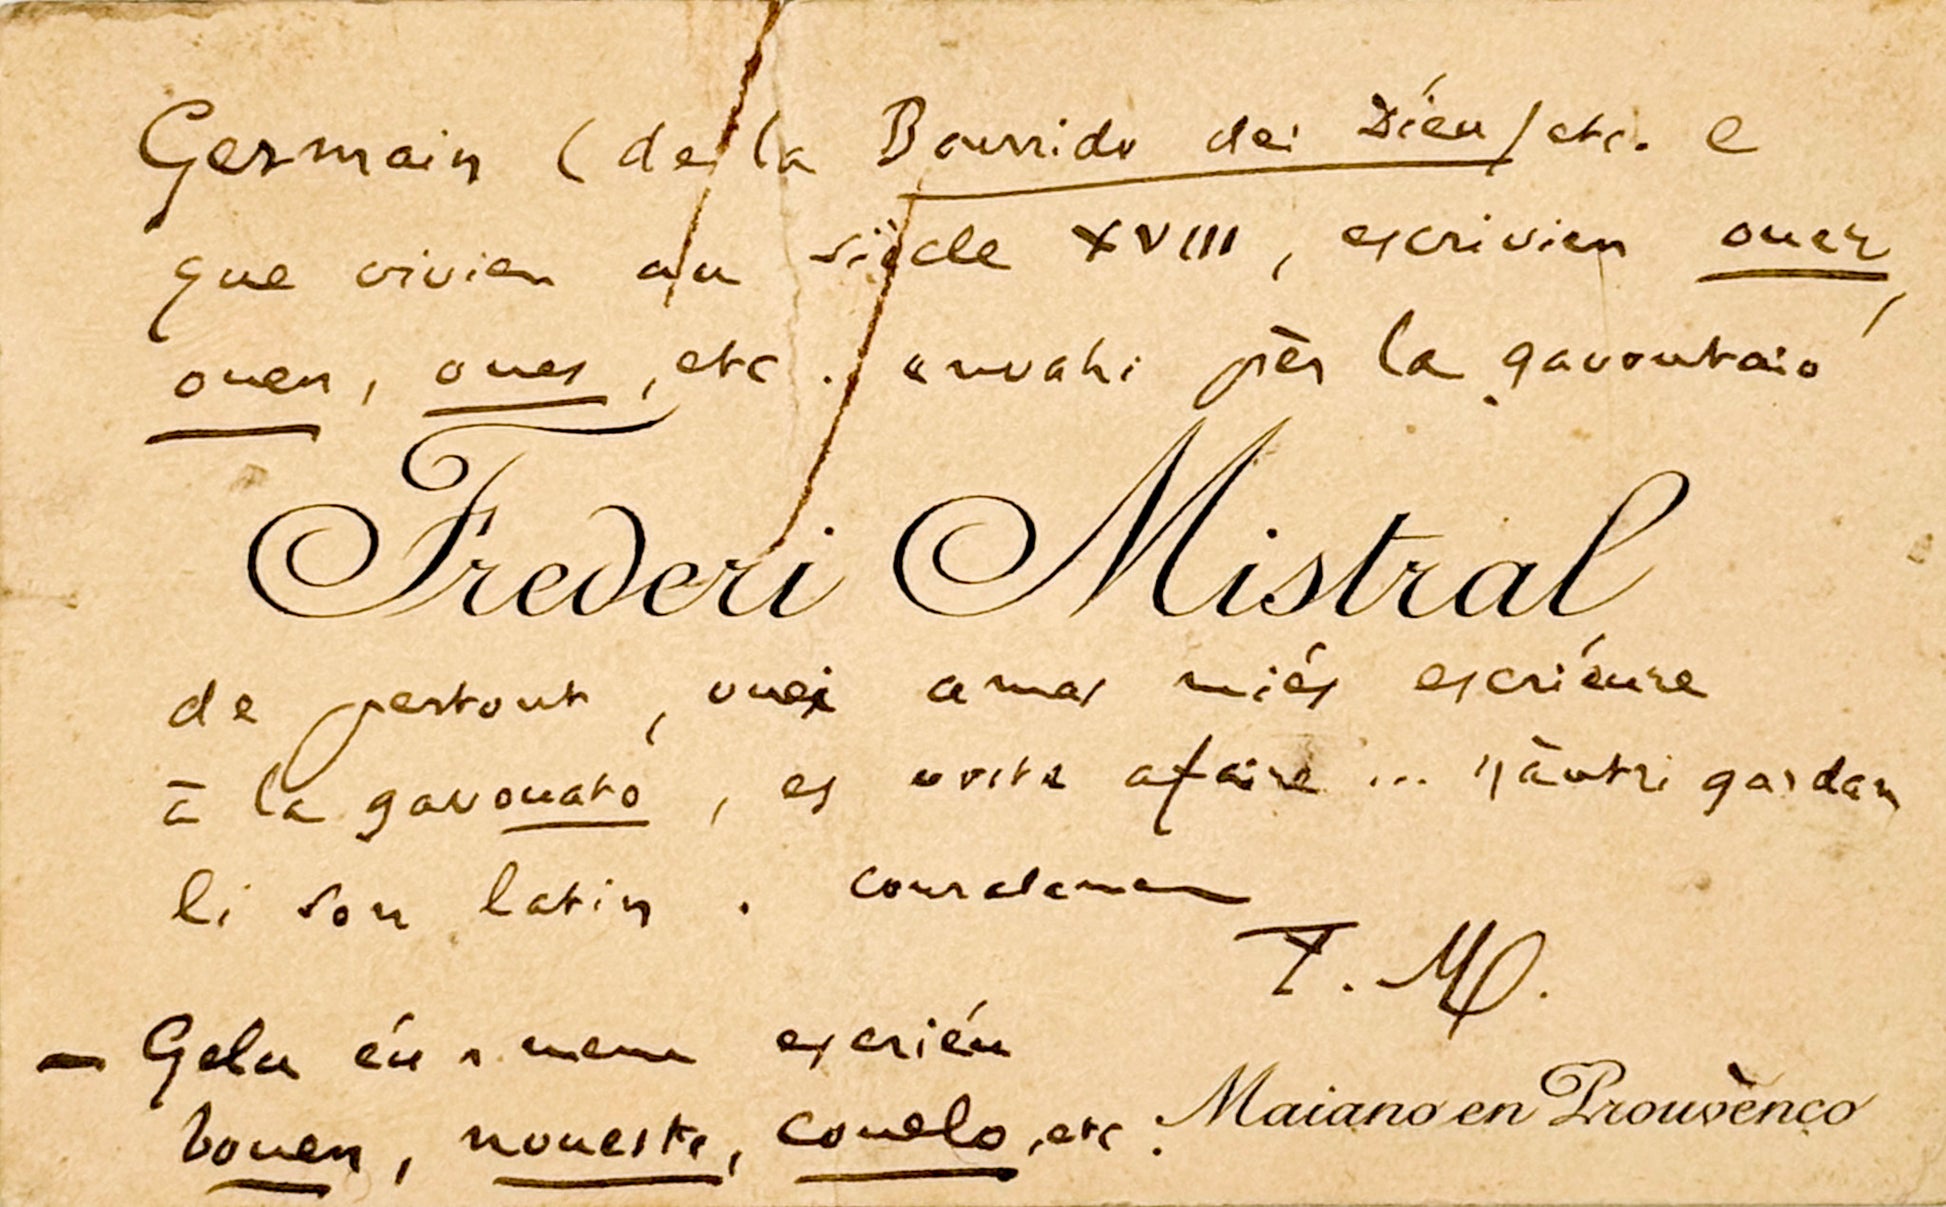 Germain (de la Bourrido dei Diéu) etc. e
que vivien au siècle XVIII, escrivien ouer,
ouen, oues, etc. envahi pèr la gavoutaio
Frederi Mistral
de pertout, amas miés escriéure
à la gavouato, es voste afaire ... n'àutri gardan
li son latin. couralamen
F. M.
— Gelu éu-meme escriéu
bouen, noueste, couelo, etc.
Maiano en Prouvènço